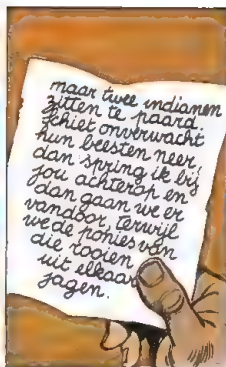 maar twee indianen
zitten te paard.
schiet onverwacht
hun beesten neer,
dan spring ik bij
jou achterop en
dan gaan we er
vandoor, terwijl
we de ponies van
die rooien
uit elkaar
jagen.